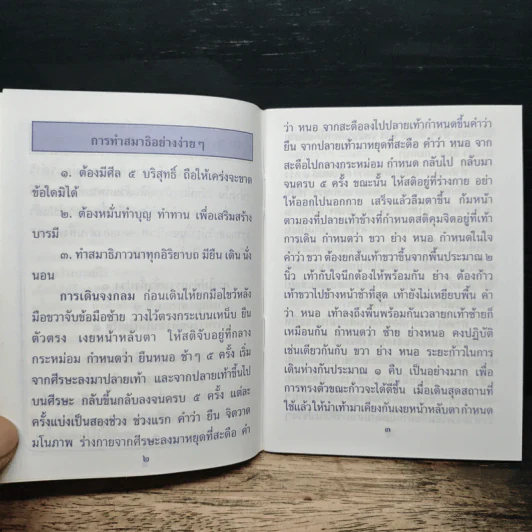 การทำสมาธิอย่างง่าย ๆ
๑. ต้องมีศีล ๕ บริสุทธิ์ ถือให้เคร่งจะขาด
ข้อใดมิได้
๒. ต้องหมั่นทำบุญ ทำทาน เพื่อเสริมสร้าง
บารมี
๓. ทำสมาธิภาวนาทุกอิริยาบถ มียืน เดิน นั่ง
นอน
การเดินจงกลม ก่อนเดินให้ยกมือไขว้หลัง
มือขวาจับข้อมือซ้าย วางไว้ตรงกระเบนเหน็บ ยืน
ตัวตรง เงยหน้าหลับตา ให้สติจับอยู่ที่กลาง
กระหม่อม กำหนดว่า ยืนหนอ ช้า ๆ ๕ ครั้ง เริ่ม
จากศีรษะลงมาปลายเท้า และจากปลายเท้าขึ้นไป
บนศีรษะ กลับขึ้นกลับลงจนครบ ๕ ครั้ง แต่ละ
ครั้งแบ่งเป็นสองช่วง ช่วงแรก คำว่า ยืน จิตวาด
มโนภาพ ร่างกายจากศีรษะลงมาหยุดที่สะดือ คำ
๒
ว่า หนอ จากสะดือลงไปปลายเท้ากำหนดขึ้นคำว่า
ยืน จากปลายเท้ามาหยุดที่สะดือ คำว่า หนอ จาก
สะดือไปกลางกระหม่อม กำหนด กลับไป กลับมา
จนครบ ๕ ครั้ง ขณะนั้น ให้สติอยู่ที่ร่างกาย อย่า
ให้ออกไปนอกกาย เสร็จแล้วลืมตาขึ้น ก้มหน้า
ตามองที่ปลายเท้าข้างที่กำหนดสติคุมจิตอยู่ที่เท้า
การเดิน กำหนดว่า ขวา ย่าง หนอ กำหนดในใจ
คำว่า ขวา ต้องยกส้นเท้าขวาขึ้นจากพื้นประมาณ ๒
นิ้ว เท้ากับใจนึกต้องให้พร้อมกัน ย่าง ต้องก้าว
เท้าขวาไปข้างหน้าช้าที่สุด เท้ายังไม่เหยียบพื้น คำ
ว่า หนอ เท้าลงถึงพื้นพร้อมกันเวลายกเท้าซ้ายก็
เหมือนกัน กำหนดว่า ซ้าย ย่างหนอ คงปฏิบัติ
เช่นเดียวกันกับ ขวา ย่าง หนอ ระยะก้าวในการ
เดินห่างกันประมาณ ๑ คืบ เป็นอย่างมาก เพื่อ
การทรงตัวขณะก้าวจะได้ดีขึ้น เมื่อเดินสุดสถานที่
ใช้แล้วให้นำเท้ามาเคียงกันเงยหน้าหลับตากำหนด
๓